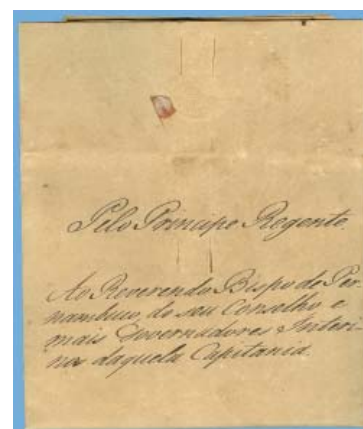 Pelo Principe Regente.
Ao Reverendo Bispo de Per-
nambuco, do seu Conselho e
mais Governadores Interi-
nos daquela Capitania.